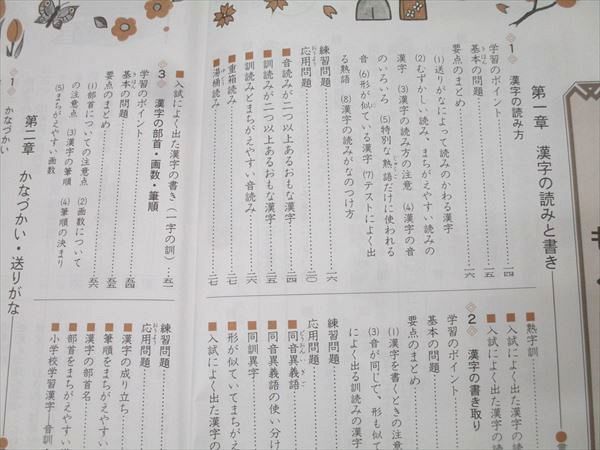 第一章　漢字の読みと書き
1　漢字の読み方
学習のポイント……一四
基本の問題……一五
要点のまとめ……一六
(1)送りがなによって読みのかわる漢字
(2)むずかしい読み、まちがえやすい読みの
漢字　(3)漢字の読み方の注意　(4)漢字の音
のいろいろ　(5)特別な熟語だけに使われる
音　(6)形が似ている漢字　(7)テストによく出
る熟語　(8)漢字の読みがなのつけ方
練習問題……一六
応用問題……二〇
■音読みが二つ以上あるおもな漢字……二四
■訓読みが二つ以上あるおもな漢字……二五
■訓読みとまちがえやすい音読み……二六
■重箱読み……二七
■湯桶読み……二七
■熟字訓
■入試によく出た漢字の
■入試によく出た漢字の読
2　漢字の書き取り
学習のポイント
基本の問題
要点のまとめ
(1)漢字を書くときの注意
(3)音が同じで、形も似て
によく出る訓読みの漢字
練習問題
応用問題
■同音異義語
■同音異義語の使い分け
■同訓異字
■形が似ていてまちがえ
■入試によく出た漢字の
■入試によく出た漢字の書き(一字の訓)……五二
3　漢字の部首・画数・筆順
学習のポイント
基本の問題……五四
要点のまとめ……五五
(1)部首についての注意点　(2)画数について
の注意点　(3)漢字の筆順　(4)筆順の決まり
(5)まちがえやすい画数
練習問題
応用問題
■漢字の成り立ち
■筆順をまちがえやすい
■漢字の部首名
■部首をまちがえやすい
■小学校学習漢字―音訓
第二章　かなづかい・送りがな
1　かなづかい